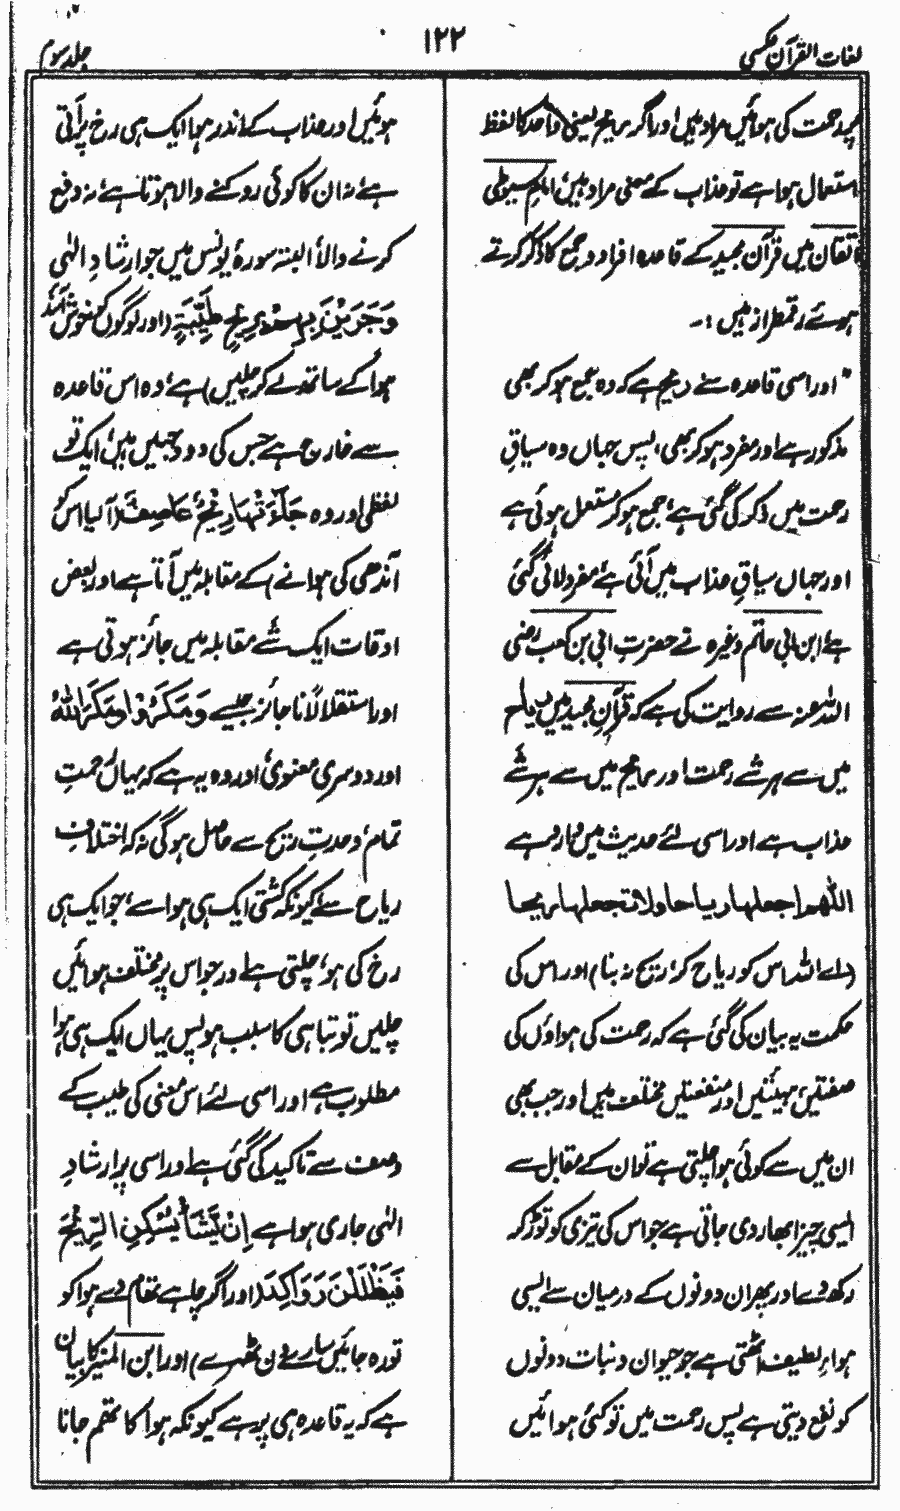 لغات القرآن عکسی
۱۲۲
جلد سوم
پر رحمت کی ہوائیں مراد ہیں اور اگر ریح یعنی واحد کا لفظ
استعمال ہوا ہے تو عذاب کے معنی مراد ہیں، امام سیوطی
اتقان میں قرآن مجید کے قاعدہ افراد و جمع کا ذکر کرتے
ہوئے رقمطراز ہیں :-
" اور اسی قاعدہ سے ریح ہے کہ وہ جمع ہو کر بھی
مذکور ہے اور مفرد ہو کر بھی، پس جہاں وہ سیاقِ
رحمت میں ذکر کی گئی ہے، جمع ہو کر مستعمل ہوئی ہے
اور جہاں سیاقِ عذاب میں آئی ہے، مفرد لائی گئی
ہے، ابن ابی حاتم وغیرہ نے حضرت ابی بن کعب رضی
اللہ عنہ سے روایت کی ہے کہ قرآن مجید میں ریاح
میں سے ہر شے رحمت اور ریح میں سے ہر شے
عذاب ہے اور اسی لئے حدیث میں وارد ہے
اللھم اجعلھا ریاحا ولا تجعلھا ریحا
(اے اللہ اس کو ریاح کر، ریح نہ بنا) اور اس کی
حکمت یہ بیان کی گئی ہے کہ رحمت کی ہواؤں کی
صفتیں، ہیئتیں اور منفعتیں مختلف ہیں اور جب بھی
ان میں سے کوئی ہوا چلتی ہے تو ان کے مقابل سے
ایسی چیز ابھار دی جاتی ہے جو اس کی تیزی کو توڑ کر
رکھ دے اور پھر ان دونوں کے درمیان سے ایسی
ہواءِ لطیف اٹھتی ہے جو حیوان و نبات دونوں
کو نفع دیتی ہے پس رحمت میں تو کئی ہوائیں
ہوئیں اور عذاب کے اندر ہوا ایک ہی رخ پر آتی
ہے، نہ ان کا کوئی روکنے والا ہوتا ہے، نہ دفع
کرنے والا، البتہ سورۂ یونس میں جو ارشادِ الٰہی
وَجَرَيْنَ بِهِمْ بِرِيحٍ طَيِّبَةٍ (اور لوگوں کو خوش آئند
ہوا کے ساتھ لے کر چلیں) ہے، وہ اس قاعدہ
سے خارج ہے جس کی دو وجہیں ہیں، ایک تو
لفظی اور وہ جَاءَتْهَا رِيحٌ عَاصِفٌ (آ لیا اس کو
آندھی کی ہوا نے) کے مقابلہ میں آنا ہے اور بعض
اوقات ایک شے مقابلہ میں جائز ہوتی ہے
اور استقلالًا ناجائز جیسے وَمَكَرُوْا وَمَكَرَ اللّٰهُ
اور دوسری معنوی، اور وہ یہ ہے کہ یہاں رحمتِ
تمام، وحدتِ ریح سے حاصل ہوگی نہ کہ اختلافِ
ریاح سے، کیونکہ کشتی ایک ہی ہوا سے، جو ایک ہی
رخ کی ہو، چلتی ہے اور جو اس پر مختلف ہوائیں
چلیں تو تباہی کا سبب ہو پس یہاں ایک ہی ہوا
مطلوب ہے اور اسی لئے اس معنی کی طیب کے
وصف سے تاکید کی گئی ہے اور اسی پر ارشادِ
الٰہی جاری ہوا ہے اِنْ يَّشَأْ يُسْكِنِ الرِّيْحَ
فَيَظْلَلْنَ رَوَاكِدَ (اور اگر چاہے تھام دے ہوا کو
تو رہ جائیں سارے دن ٹھہرے) اور ابن المنیر کا بیان
ہے کہ یہ قاعدہ ہی پر ہے کیونکہ ہوا کا تھم جانا